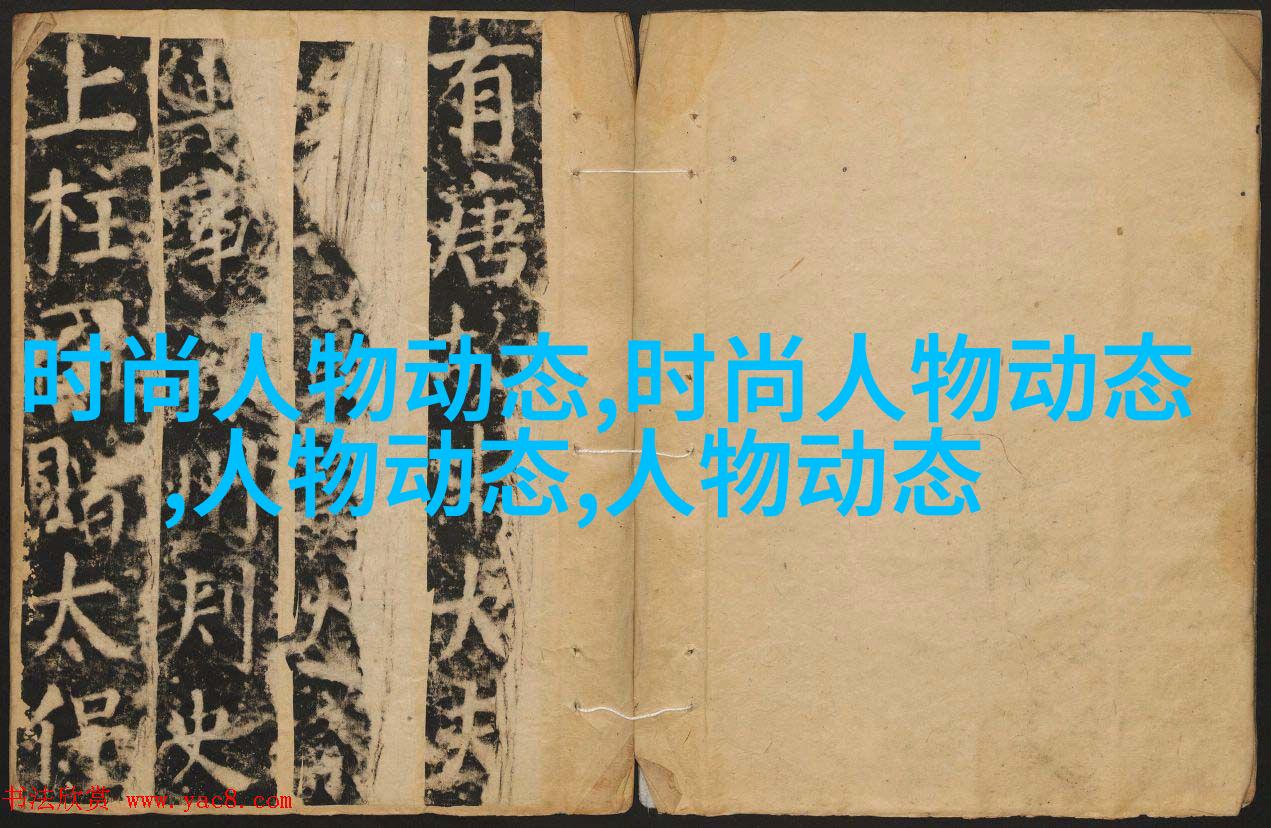 有唐大夫
軍州刺史
上柱國贈太保
时尚人物动态,时尚人物动态
,人物动态,人物动态
书法欣赏 www.yac8.com